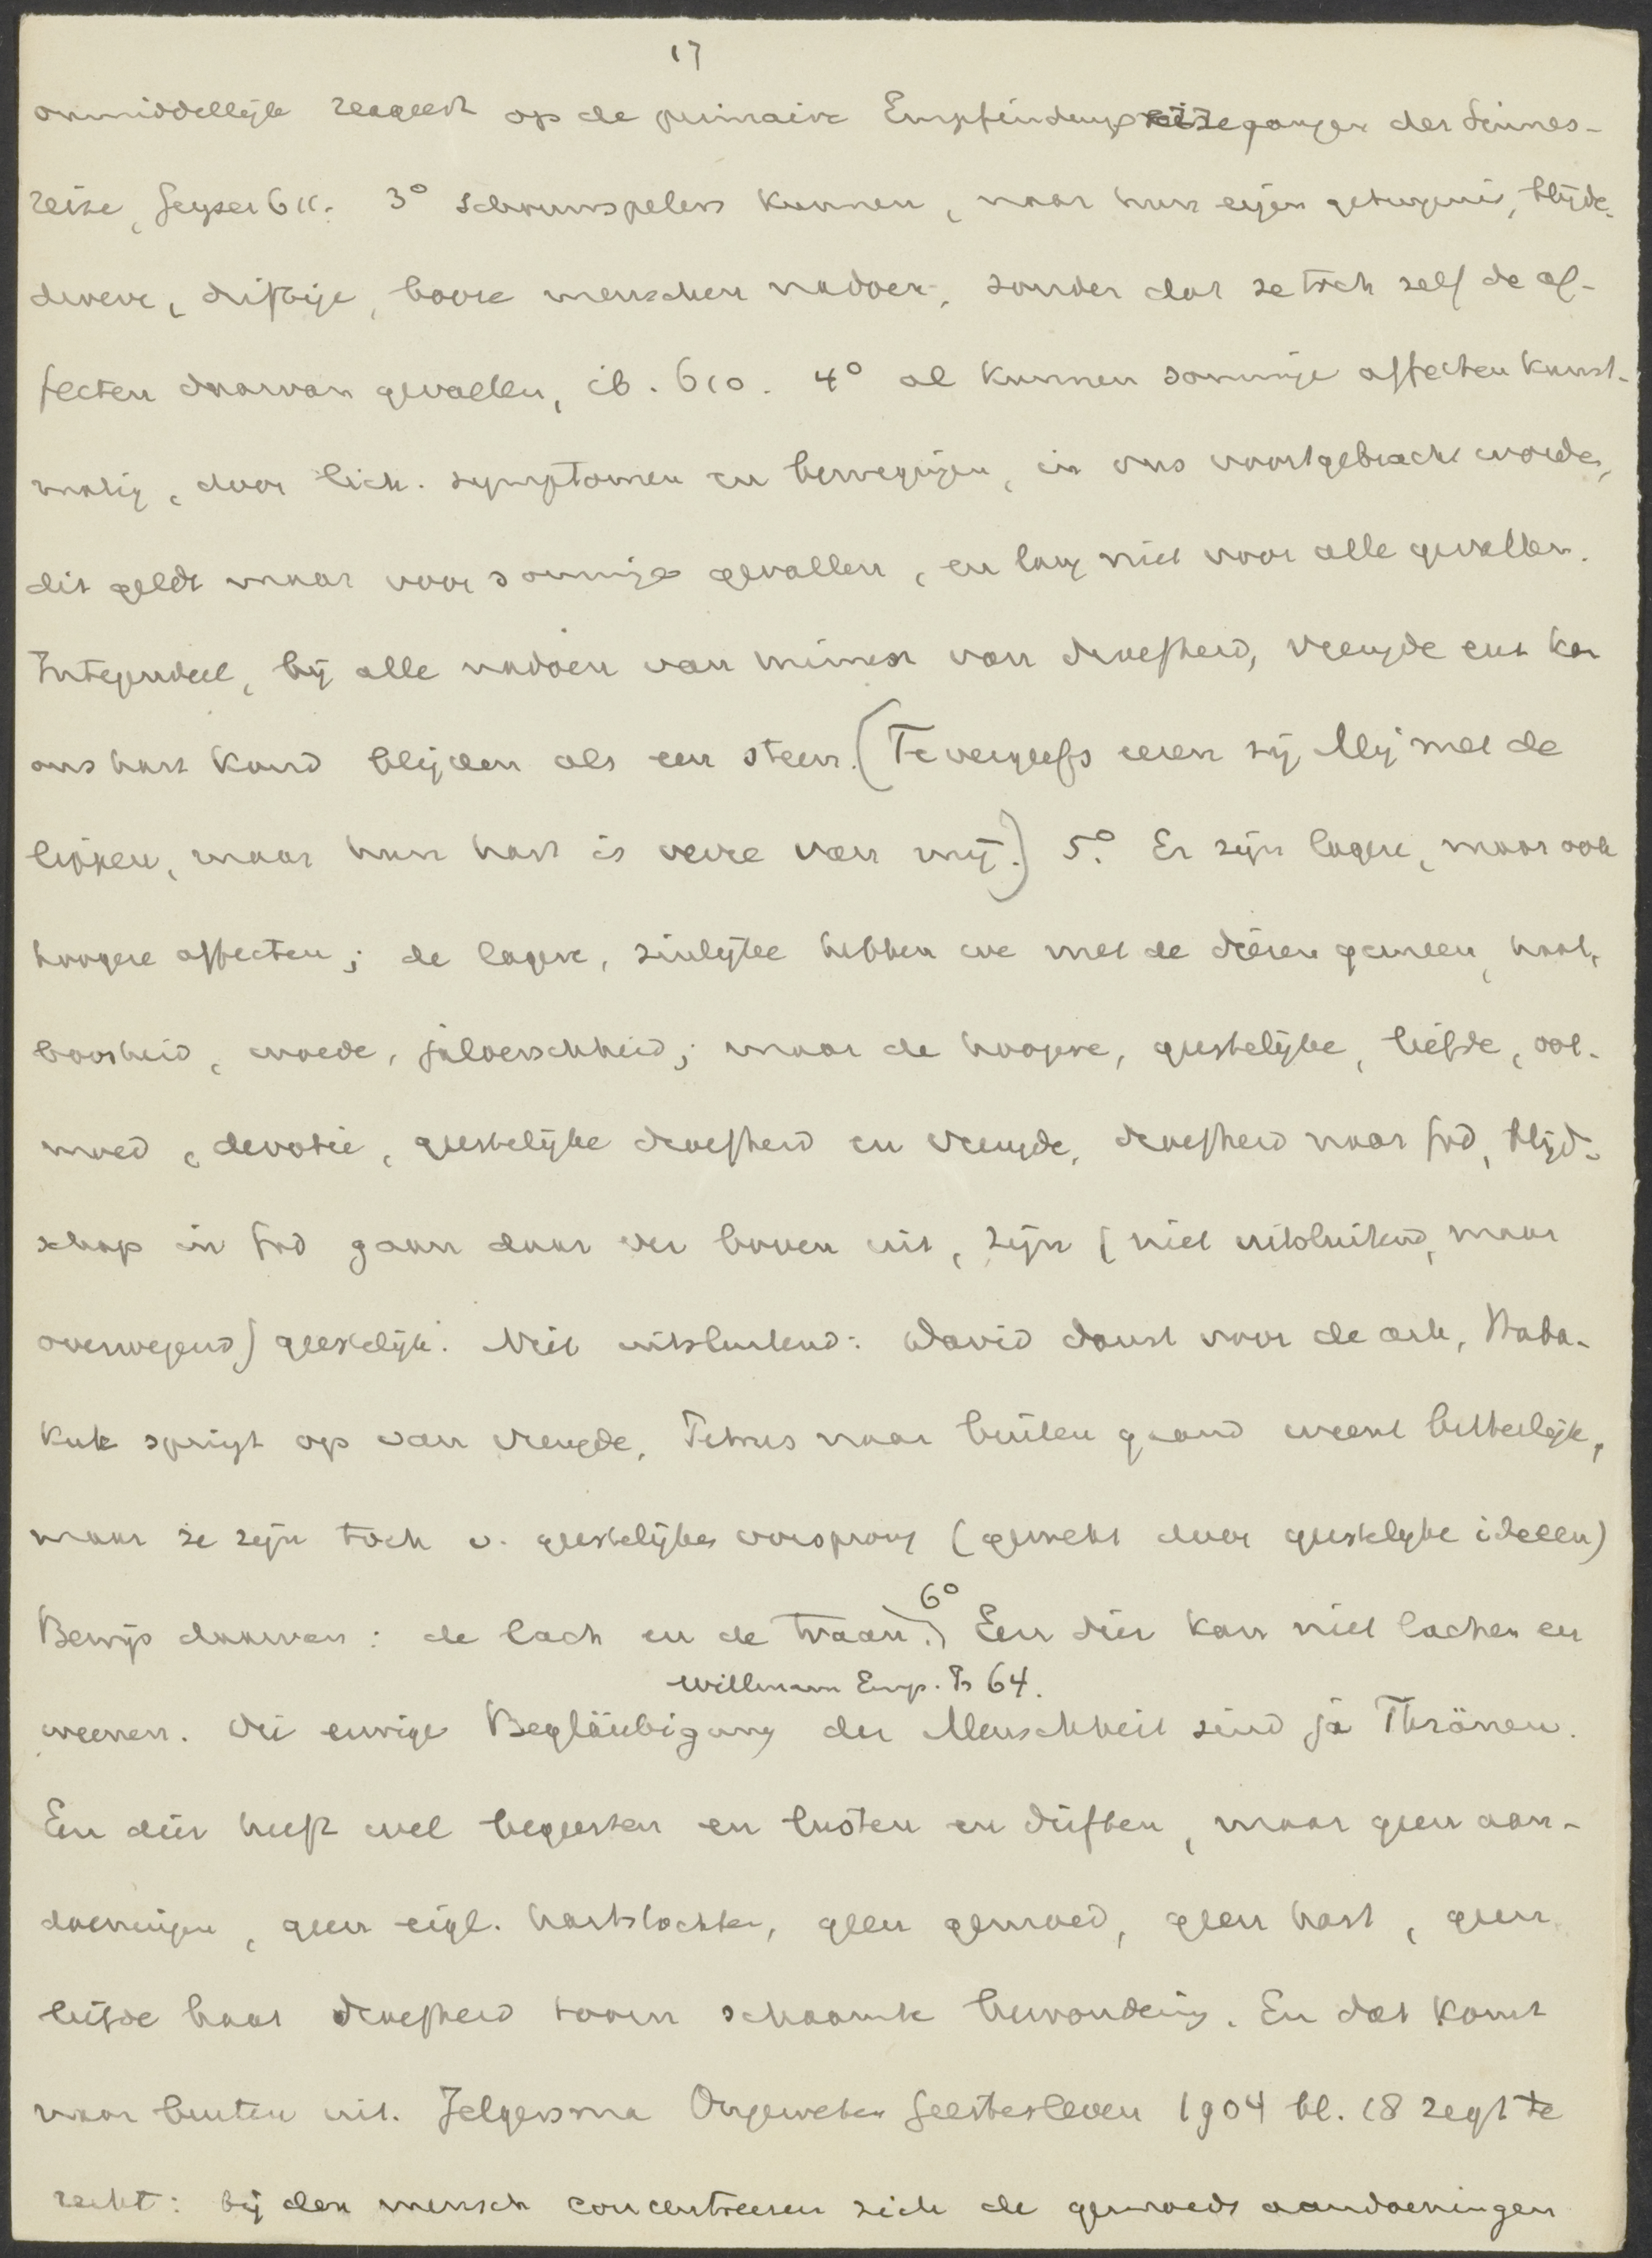 17
onmiddellijk reageert op de primaire Empfindungs der Sinnes-
reize, Geyser 611. 3° Schouwspelers kunnen, naar hun eigen getuigenis, blijde,
droeve, driftige, booze menschen nadoen, zonder dat ze toch zelf de af-
fecten daarvan gevoellen, ib. 610. 4° al kunnen sommige affecten kunst-
matig, door lich. symptomen en bewegingen, in ons voortgebracht worden,
dit geldt maar voor sommige gevallen, en lang niet voor alle gevallen.
Integendeel, bij alle nadoen van mimiek van droefheid, vreugde enz kan
ons hart koud blijven als een steen. (Te vergeefs eeren zij Mij met de
lippen, maar hun hart is verre van mij.) 5° Er zijn lagere, maar ook
hoogere affecten; de lagere, zinlijke hebben we met de dieren gemeen, haat,
boosheid, woede, jaloerschheid; maar de hoogere, geestelijke, liefde, oot-
moed, devotie, geestelijke droefheid en vreugde, droefheid naar God, blijd-
schap in God gaan daar ver boven uit, zijn (niet uitsluitend, maar
overwegend) geestelijk. Niet uitsluitend: David danst voor de ark, Haba-
kuk springt op van vreugde, Petrus naar buiten gaand weent bitterlijk,
maar ze zijn toch v. geestelijken oorsprong (gewekt door geestelijke ideeen)
Bewijs daarvan: de lach en de traan.) 6° Een dier kan niet lachen en
Willmann Emp. Ps 64.
weenen. Die ewige Begläubigung der Menschheit sind ja Thränen.
Een dier heeft wel begeerten en lusten en driften, maar geen aan-
doeningen, geen eigl. hartstochten, geen gemoed, geen hart, geen
liefde haat droefheid toorn schaamte bewondering. En dat komt
naar buiten uit. Jelgersma Ongeweten Geestesleven 1904 bl. 18 zegt te
recht: bij den mensch concentreeren zich de gemoeds aandoeningen